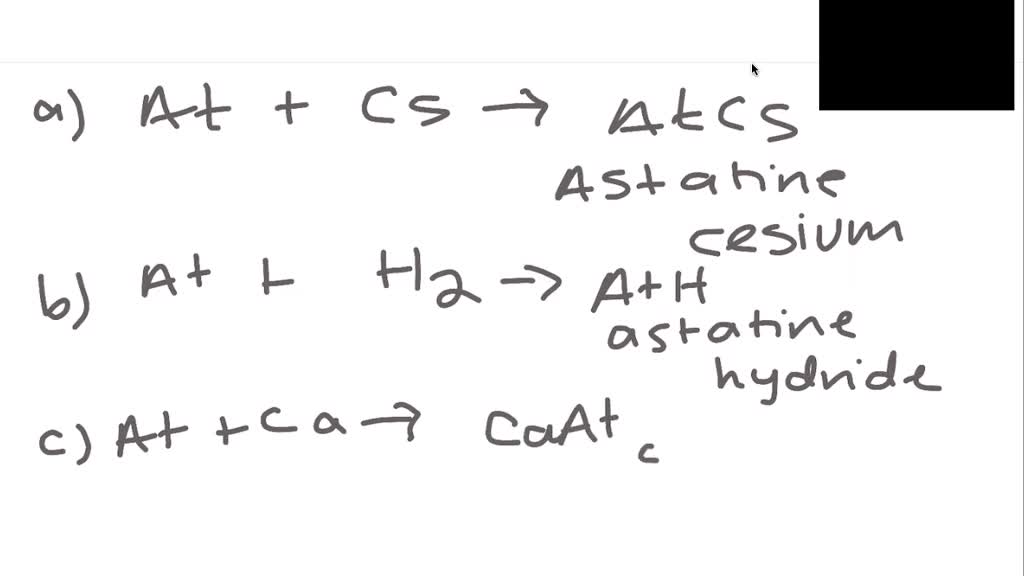 a) At + Cs → AtCs
Astatine
cesium
b) At + H2 → AtH
astatine
hydride
c) At + Ca → CaAt
c